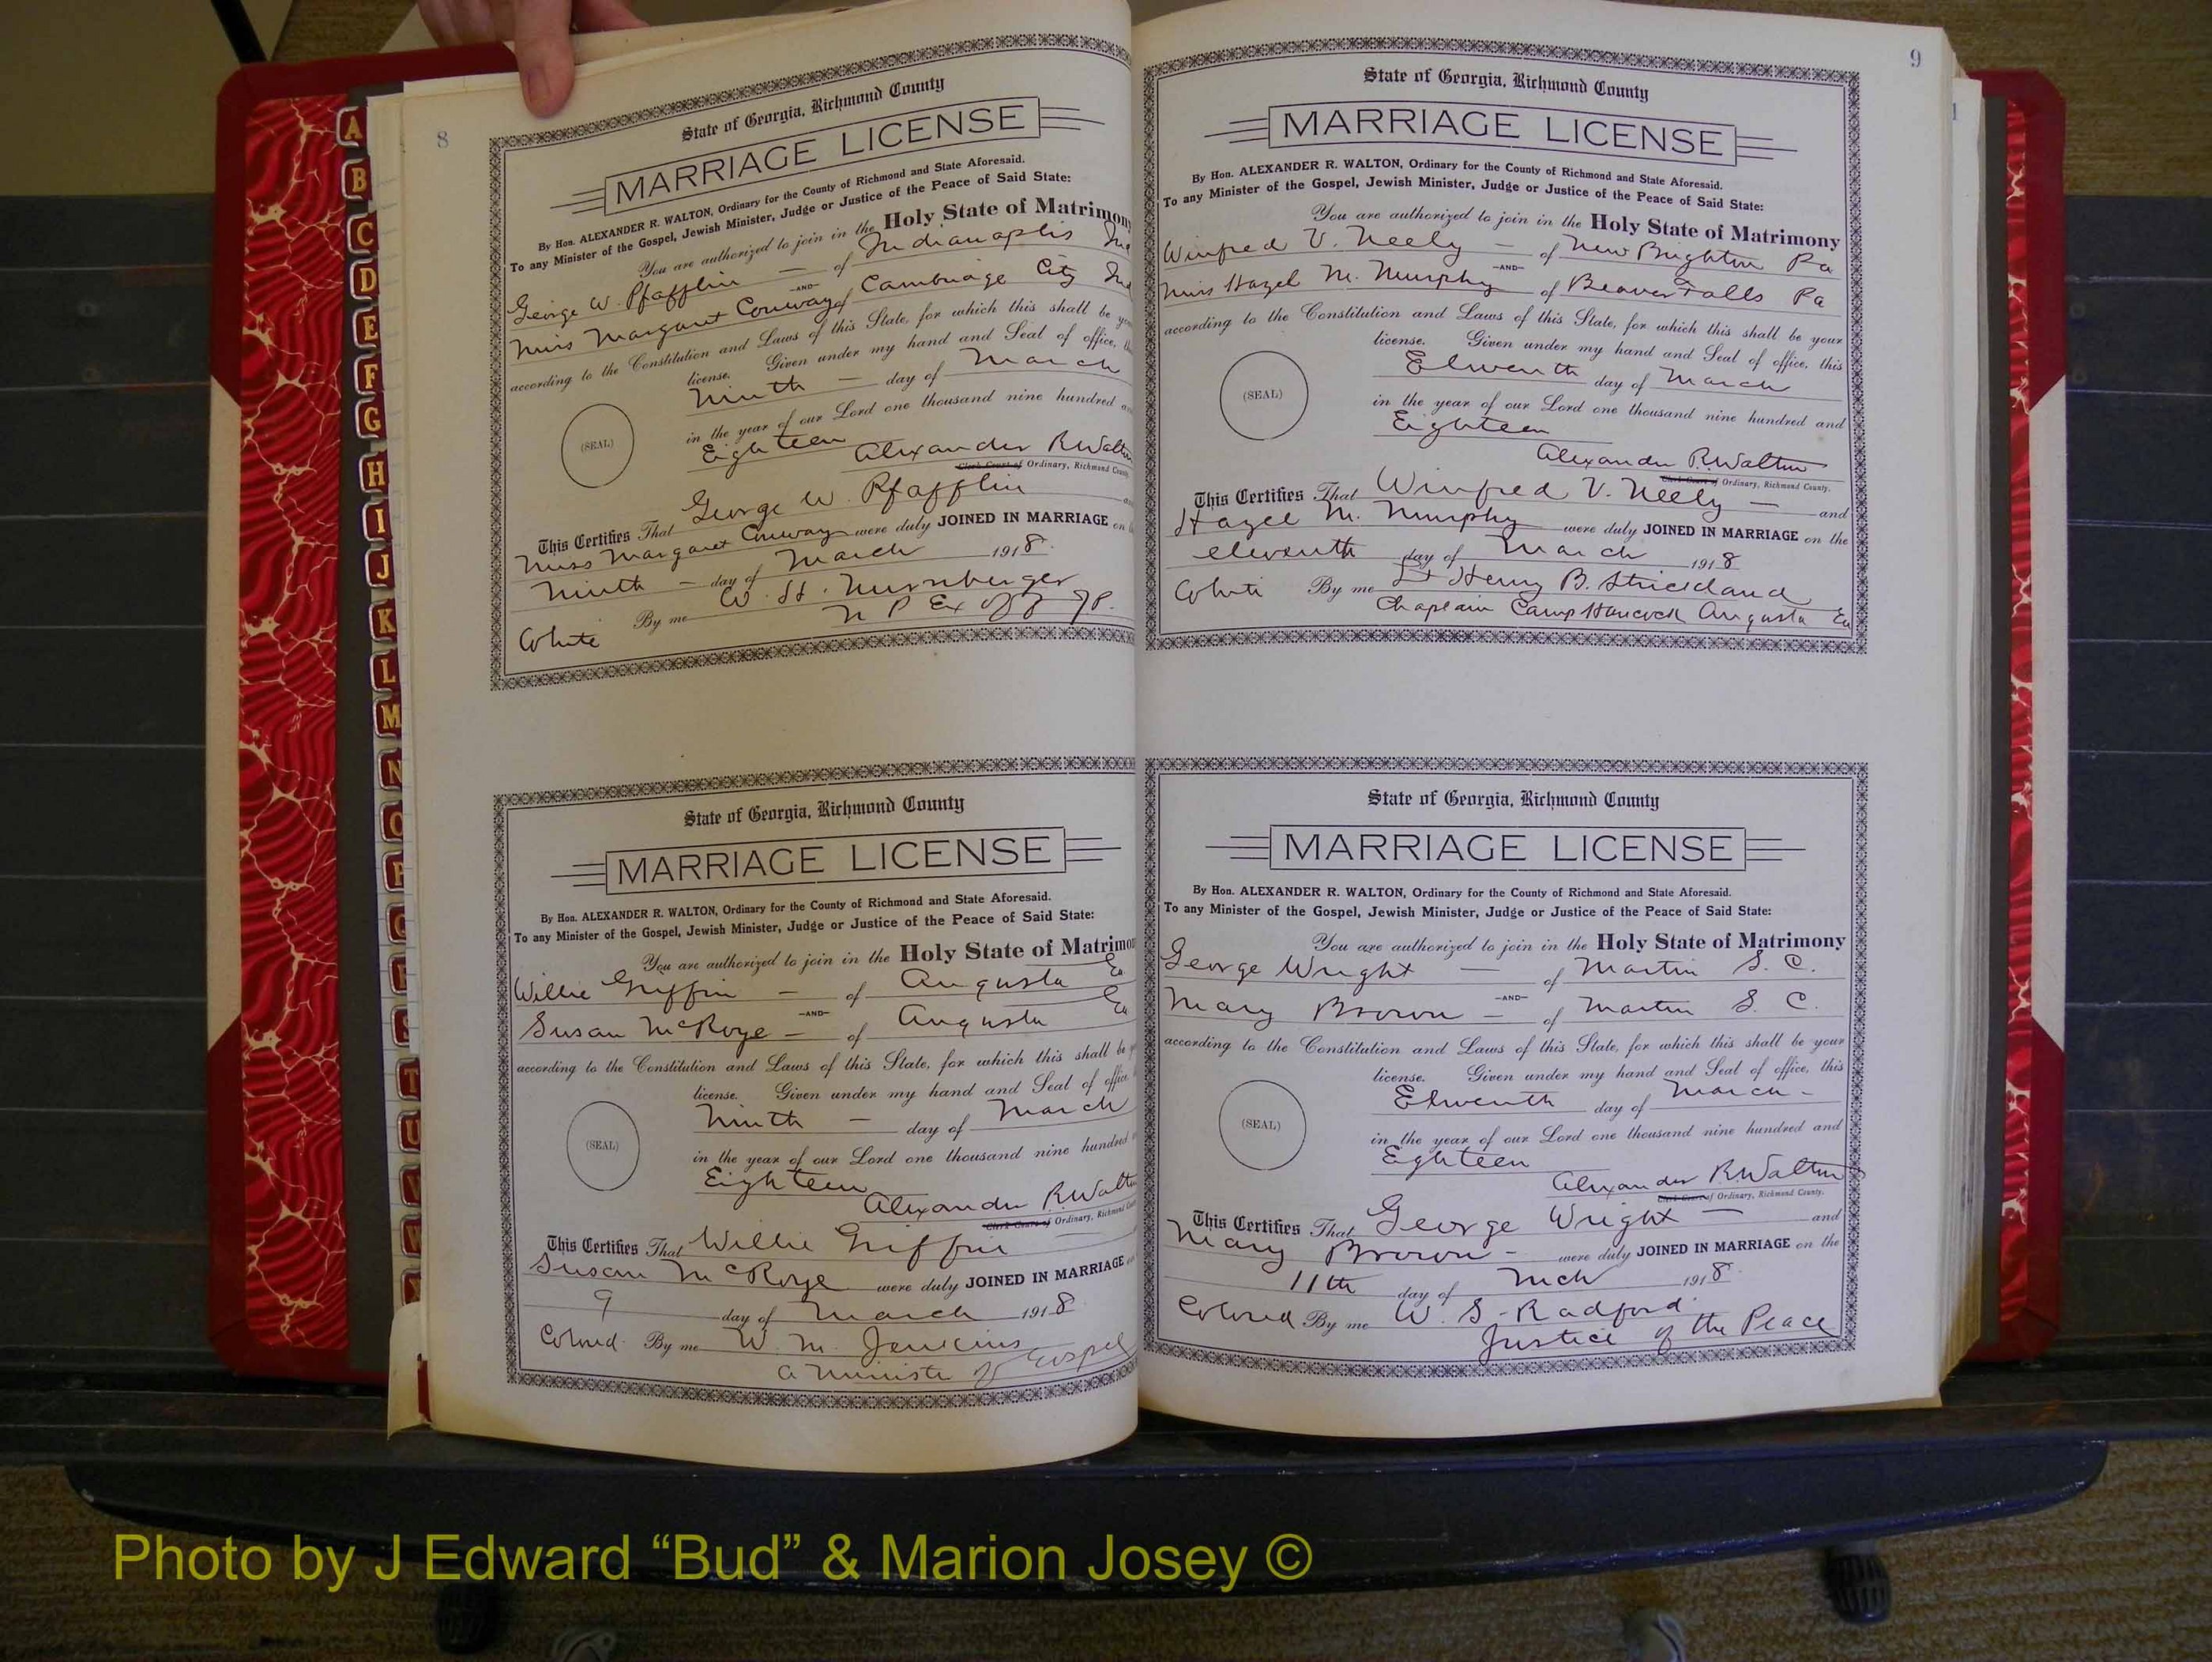 8
State of Georgia, Richmond County
MARRIAGE LICENSE
By Hon. ALEXANDER R. WALTON, Ordinary for the County of Richmond and State Aforesaid.
To any Minister of the Gospel, Jewish Minister, Judge or Justice of the Peace of Said State:
You are authorized to join in the Holy State of Matrimony
George W. Pfafflin — of Indianaplis Ind
—AND—
Miss Margaret Conway of Cambridge City Ind
according to the Constitution and Laws of this State, for which this shall be
license. Given under my hand and Seal of office,
Ninth — day of March
(SEAL)
in the year of our Lord one thousand nine hundred
Eighteen
Alexander R Walton
Clerk Court of Ordinary, Richmond County
This Certifies That George W. Pfafflin
Miss Margaret Conway were duly JOINED IN MARRIAGE on
Ninth — day of March 1918.
By me W. H. Nurnberger
White N P Ex Off J P.
State of Georgia, Richmond County
MARRIAGE LICENSE
By Hon. ALEXANDER R. WALTON, Ordinary for the County of Richmond and State Aforesaid.
To any Minister of the Gospel, Jewish Minister, Judge or Justice of the Peace of Said State:
You are authorized to join in the Holy State of Matrimo
Willie Griffin — of Augusta Ga
—AND—
Susan McRoye — of Augusta Ga
according to the Constitution and Laws of this State, for which this shall be
license. Given under my hand and Seal of office
Ninth — day of March
(SEAL)
in the year of our Lord one thousand nine hundred
Eighteen
Alexander R. Walton
Clerk Court of Ordinary, Richmond
This Certifies That Willie Griffin
Susan McRoye were duly JOINED IN MARRIAGE
9 day of March 1918
Colored. By me W. M. Jenkins
a Ministe of Gospel
9
State of Georgia, Richmond County
MARRIAGE LICENSE
By Hon. ALEXANDER R. WALTON, Ordinary for the County of Richmond and State Aforesaid.
To any Minister of the Gospel, Jewish Minister, Judge or Justice of the Peace of Said State:
You are authorized to join in the Holy State of Matrimony
Winfred V. Neely — of New Brighton Pa
—AND—
Miss Hazel M. Murphy of Beaver Falls Pa
according to the Constitution and Laws of this State, for which this shall be your
license. Given under my hand and Seal of office, this
Eleventh day of March
(SEAL)
in the year of our Lord one thousand nine hundred and
Eighteen
Alexander R. Walton
Clerk Court of Ordinary, Richmond County.
This Certifies That Winfred V. Neely — and
Hazel M. Murphy were duly JOINED IN MARRIAGE on the
eleventh day of March 1918
White By me Lt Henry B. Strickland
Chaplain Camp Hancock Augusta Ga
State of Georgia, Richmond County
MARRIAGE LICENSE
By Hon. ALEXANDER R. WALTON, Ordinary for the County of Richmond and State Aforesaid.
To any Minister of the Gospel, Jewish Minister, Judge or Justice of the Peace of Said State:
You are authorized to join in the Holy State of Matrimony
George Wright — of Martin S. C.
—AND—
Mary Brown — of Martin S. C.
according to the Constitution and Laws of this State, for which this shall be your
license. Given under my hand and Seal of office, this
Eleventh day of March -
(SEAL)
in the year of our Lord one thousand nine hundred and
Eighteen
Alexander R. Walton
Clerk Court of Ordinary, Richmond County.
This Certifies That George Wright — and
Mary Brown - were duly JOINED IN MARRIAGE on the
11th day of Mch 1918.
Colored By me W. S. Radford.
Justice of the Peace
A
B
C
D
E
F
G
H
I
J
K
L
M
N
O
P
Q
R
S
T
U
V
W
Photo by J Edward “Bud” & Marion Josey ©